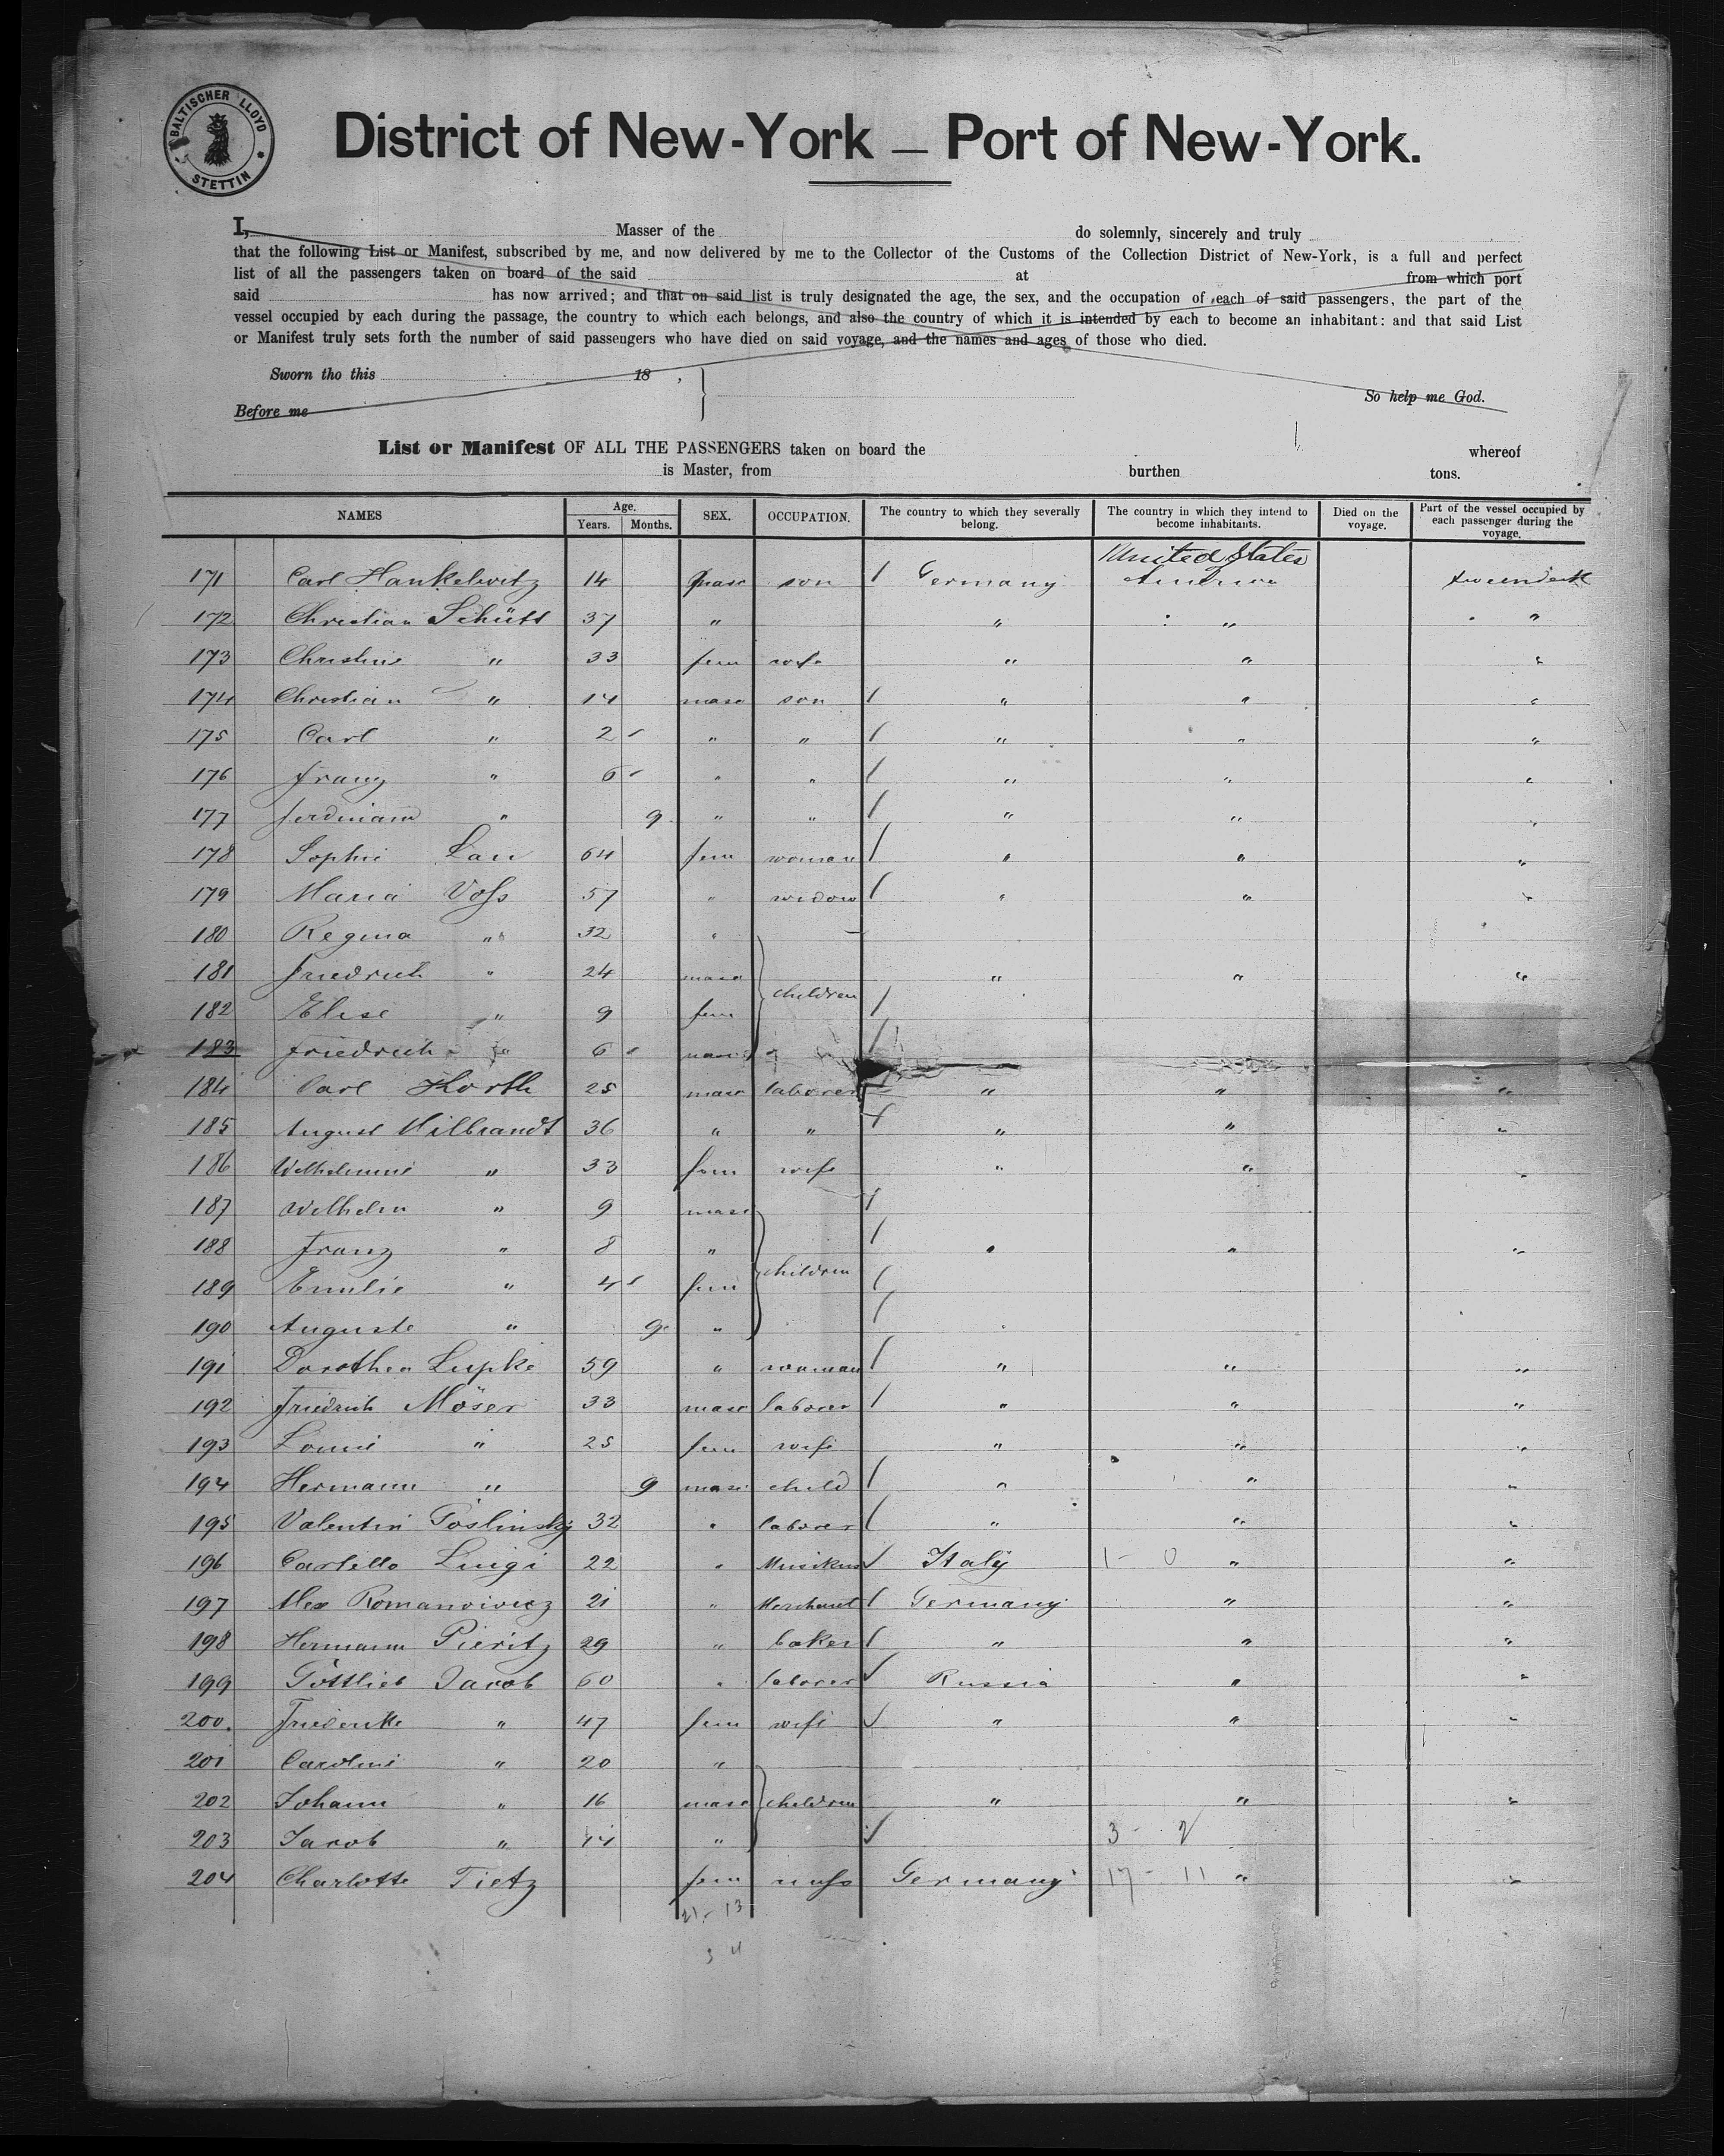 BALTISCHER LLOYD
STETTIN
District of New-York — Port of New-York.
I, Masser of the do solemnly, sincerely and truly
that the following List or Manifest, subscribed by me, and now delivered by me to the Collector of the Customs of the Collection District of New-York, is a full and perfect
list of all the passengers taken on board of the said at from which port
said has now arrived; and that on said list is truly designated the age, the sex, and the occupation of each of said passengers, the part of the
vessel occupied by each during the passage, the country to which each belongs, and also the country of which it is intended by each to become an inhabitant: and that said List
or Manifest truly sets forth the number of said passengers who have died on said voyage, and the names and ages of those who died.
Sworn tho this 18 ,
So help me God.
Before me
List or Manifest OF ALL THE PASSENGERS taken on board the whereof
is Master, from burthen tons.
NAMES Age. Years. Months. SEX. OCCUPATION. The country to which they severally belong. The country in which they intend to become inhabitants. Died on the voyage. Part of the vessel occupied by each passenger during the voyage.
United States
171 Carl Hankelwitz 14 masc son Germany America
172 Christian Schütt 37 " " " "
173 Christine " 33 fem wife " " "
174 Christian " 14 masc son " " "
175 Carl " 2 " " " " "
176 Franz " 6 " " " " "
177 Ferdinand " 9 " " " " "
178 Sophie Lau 64 fem woman " " "
179 Maria Voss 57 " widow " " "
180 Regina " 32 "
181 Friedrich " 24 masc " " "
children
182 Elise " 9 fem
183 Friedrich " 6 masc
184 Carl Korth 25 masc laborer " " "
185 August Hilbrandt 36 " " " " "
186 Wilhelmine " 33 fem wife " " "
187 Wilhelm " 9 masc
188 Franz " 8 " " " "
children
189 Emilie " 4 fem
190 Auguste " 9 "
191 Dorothea Lupke 59 " woman " " "
192 Friedrich Möser 33 masc laborer " " "
193 Louise " 25 fem wife " " "
194 Hermann " 9 masc child " " "
195 Valentin Poslinsky 32 " laborer " " "
196 Castello Luigi 22 " Musikus Italy 1 - 0 " "
197 Alex Romanowicz 21 " Merchant Germany " "
198 Hermann Pieritz 29 " baker " " "
199 Gottlieb Jacob 60 " laborer Russia " "
200. Friederike " 47 fem wife " " "
201 Caroline " 20 "
202 Johann " 16 masc children " " "
203 Jacob " 14 " 3 - 2
204 Charlotte Tietz fem Germany 17 - 11 " "
21 - 13
3 4